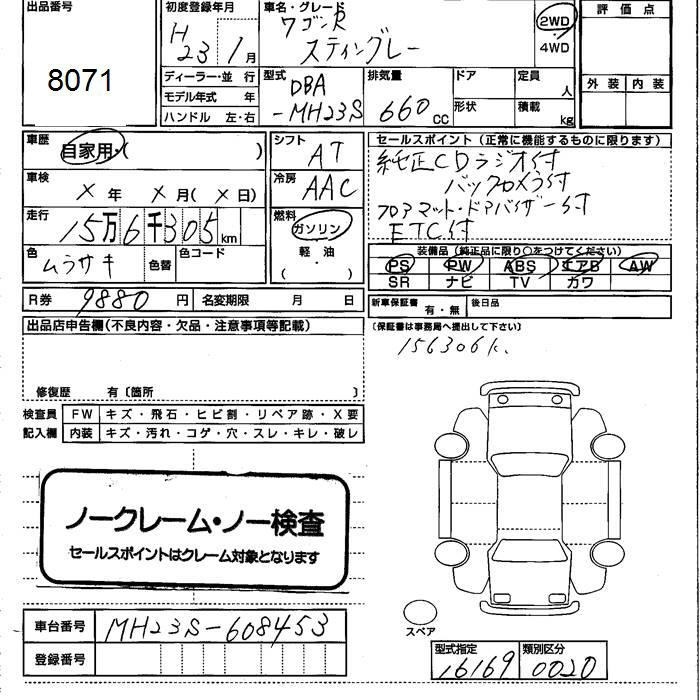 出品番号
8071
初度登録年月
H23 1月
車名・グレード
ワゴンR
スティングレー
2WD
4WD
評価点
外装 内装
ディーラー・並行
モデル年式 年
ハンドル 左・右
型式
DBA
-MH23S
排気量
660cc
ドア
形状
定員
人
積載
kg
車歴
自家用・( )
シフト
AT
車検
× 年 × 月(× 日)
冷房
AAC
走行
15万6千305km
燃料
ガソリン
軽・油
( )
色
ムラサキ
色替
色コード
セールスポイント(正常に機能するものに限ります)
純正CDラジオ付
バックカメラ付
フロアマット・ドアバイザー付
ETC付
装備品(純正品に限り○をつけてください)
PS PW ABS エアB AW
SR ナビ TV カワ
R券 9880円 名変期限 月 日
新車保証書 有・無 後日品
(保証書は事務局へ提出して下さい)
156306k.
出品店申告欄(不良内容・欠品・注意事項等記載)
修復歴 有〔箇所 〕
検査員
記入欄
FW キズ・飛石・ヒビ割・リペア跡・X要
内装 キズ・汚れ・コゲ・穴・スレ・キレ・破レ
ノークレーム・ノー検査
セールスポイントはクレーム対象となります
スペア
車台番号 MH23S-608453
登録番号
型式指定 類別区分
16169 0020